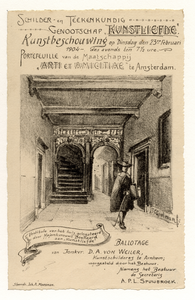 SCHILDER- EN TEEKENKUNDIG
GENOOTSCHAP "KUNSTLIEFDE"
Kunstbeschouwing op Dinsdag den 23sten Februari
1904 — des avonds ten 7½ ure.
PORTEFEUILLE van de Maatschappij
"ARTI ET AMICITIAE" te Amsterdam.
BALLOTAGE
van Jonkhr. D. A. VAN WELIER,
Kunstschilder te Arnhem,
voorgesteld door het Bestuur.
Namens het Bestuur
de Secretaris
A. P. L. SPRUIJBROEK